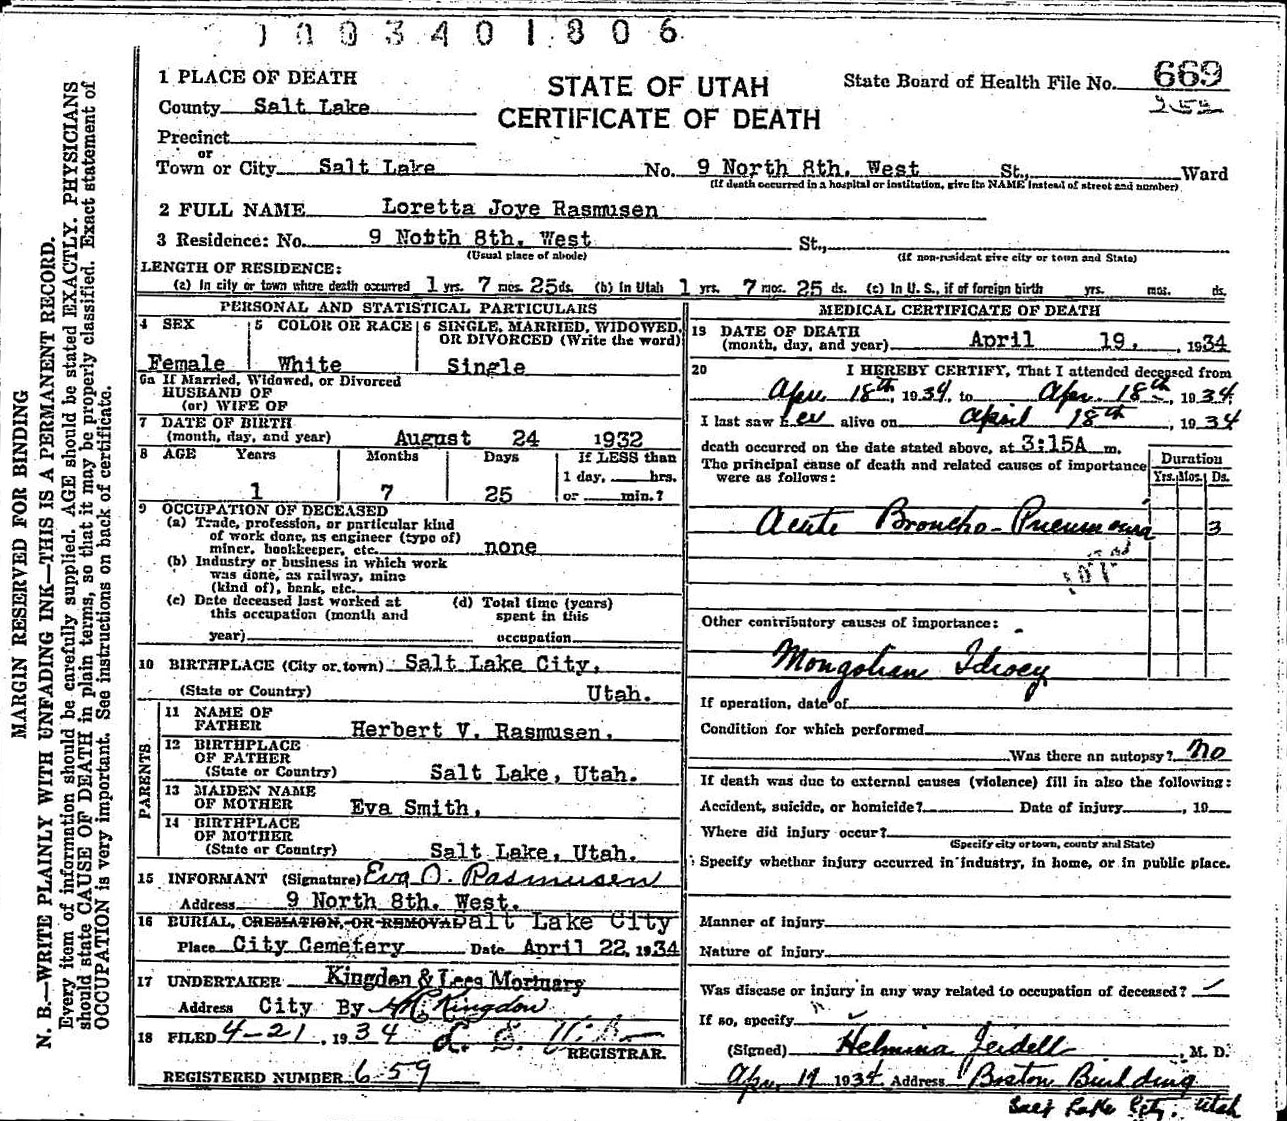 1003401806
1 PLACE OF DEATH
STATE OF UTAH
CERTIFICATE OF DEATH
State Board of Health File No. 669
County Salt Lake
Precinct
or
Town or City Salt Lake No. 9 North 8th. West St., Ward
(If death occurred in a hospital or institution, give its NAME instead of street and number)
2 FULL NAME Loretta Joye Rasmusen
3 Residence: No. 9 North 8th. West St.,
(Usual place of abode) (If non-resident give city or town and State)
LENGTH OF RESIDENCE:
(a) In city or town where death occurred 1 yrs. 7 mos. 25 ds. (b) In Utah 1 yrs. 7 mos. 25 ds. (c) In U. S., if of foreign birth yrs. mos. ds.
PERSONAL AND STATISTICAL PARTICULARS
4 SEX 5 COLOR OR RACE 6 SINGLE, MARRIED, WIDOWED, OR DIVORCED (Write the word)
Female White Single
6a If Married, Widowed, or Divorced
HUSBAND OF
(or) WIFE OF
7 DATE OF BIRTH
(month, day, and year) August 24 1932
8 AGE Years Months Days If LESS than
1 day, hrs.
1 7 25 or min.?
9 OCCUPATION OF DECEASED
(a) Trade, profession, or particular kind
of work done, as engineer (type of)
miner, bookkeeper, etc. none
(b) Industry or business in which work
was done, as railway, mine
(kind of), bank, etc.
(c) Date deceased last worked at
this occupation (month and
year)
(d) Total time (years)
spent in this
occupation
10 BIRTHPLACE (City or town) Salt Lake City,
(State or Country) Utah.
PARENTS
11 NAME OF
FATHER Herbert V. Rasmusen.
12 BIRTHPLACE
OF FATHER
(State or Country) Salt Lake, Utah.
13 MAIDEN NAME
OF MOTHER Eva Smith,
14 BIRTHPLACE
OF MOTHER
(State or Country) Salt Lake, Utah.
15 INFORMANT (Signature) Eva O. Rasmusen
Address 9 North 8th. West.
16 BURIAL, CREMATION, OR REMOVAL Salt Lake City
Place City Cemetery Date April 22, 1934
17 UNDERTAKER Kingdon & Lees Mortuary
Address City By Kingdon
18 FILED 4-21, 1934
REGISTRAR.
REGISTERED NUMBER 659
MEDICAL CERTIFICATE OF DEATH
19 DATE OF DEATH
(month, day, and year) April 19, 1934
20 I HEREBY CERTIFY, That I attended deceased from
Apr. 18th, 1934, to Apr. 18th, 1934.
I last saw her alive on April 18th, 1934
death occurred on the date stated above, at 3:15A m.
The principal cause of death and related causes of importance
were as follows:
Duration
Yrs. Mos. Ds.
Acute Broncho-Pneumonia 3
Other contributory causes of importance:
Mongolian Idiocy
If operation, date of
Condition for which performed
Was there an autopsy? no
If death was due to external causes (violence) fill in also the following:
Accident, suicide, or homicide? Date of injury, 19
Where did injury occur?
(Specify city or town, county and State)
Specify whether injury occurred in industry, in home, or in public place.
Manner of injury
Nature of injury
Was disease or injury in any way related to occupation of deceased?
If so, specify
(Signed) Helmina Jeidell, M. D.
Apr. 19 1934 Address Boston Building
Salt Lake City, Utah
MARGIN RESERVED FOR BINDING
N. B.—WRITE PLAINLY WITH UNFADING INK—THIS IS A PERMANENT RECORD.
Every item of information should be carefully supplied. AGE should be stated EXACTLY. PHYSICIANS
should state CAUSE OF DEATH in plain terms, so that it may be properly classified. Exact statement of
OCCUPATION is very important. See instructions on back of certificate.